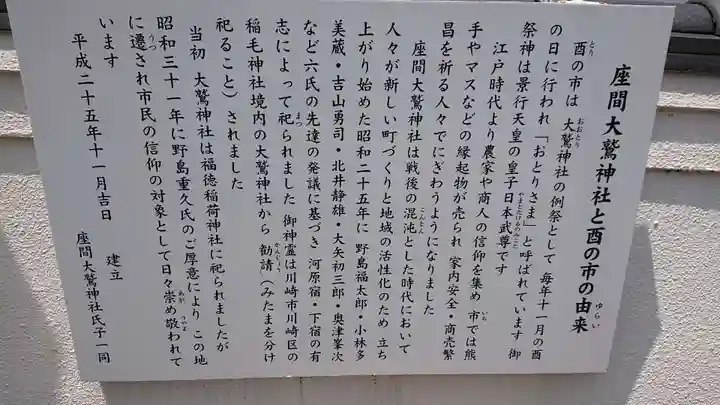 座間大鷲神社と酉の市の由来
ゆらい
酉の市は 大鷲神社の例祭として 毎年十一月の酉
とり
おおとり
の日に行われ「おとりさま」と呼ばれています 御
祭神は景行天皇の皇子日本武尊です
やまとたけるのみこと
江戸時代より農家や商人の信仰を集め 市では熊
いち
手やマスなどの縁起物が売られ 家内安全・商売繁
昌を祈る人々でにぎわうようになりました
座間大鷲神社は戦後の混沌とした時代において
こんとん
人々が新しい町づくりと地域の活性化のため 立ち
上がり始めた昭和二十五年に 野島福太郎・小林多
美蔵・吉山勇司・北井静雄・大矢初三郎・奥津峯次
など六氏の先達の発議に基づき 河原宿・下宿の有
志によって祀られました 御神霊は川崎市川崎区の
まつ
稲毛神社境内の大鷲神社から 勧請(みたまを分け
かんじょう
祀ること)されました
当初 大鷲神社は福徳稲荷神社に祀られましたが
昭和三十一年に野島重久氏のご厚意により この地
に遷され市民の信仰の対象として日々崇め敬われて
うつ
あが
うやま
います
平成二十五年十一月吉日 建立
座間大鷲神社氏子一同